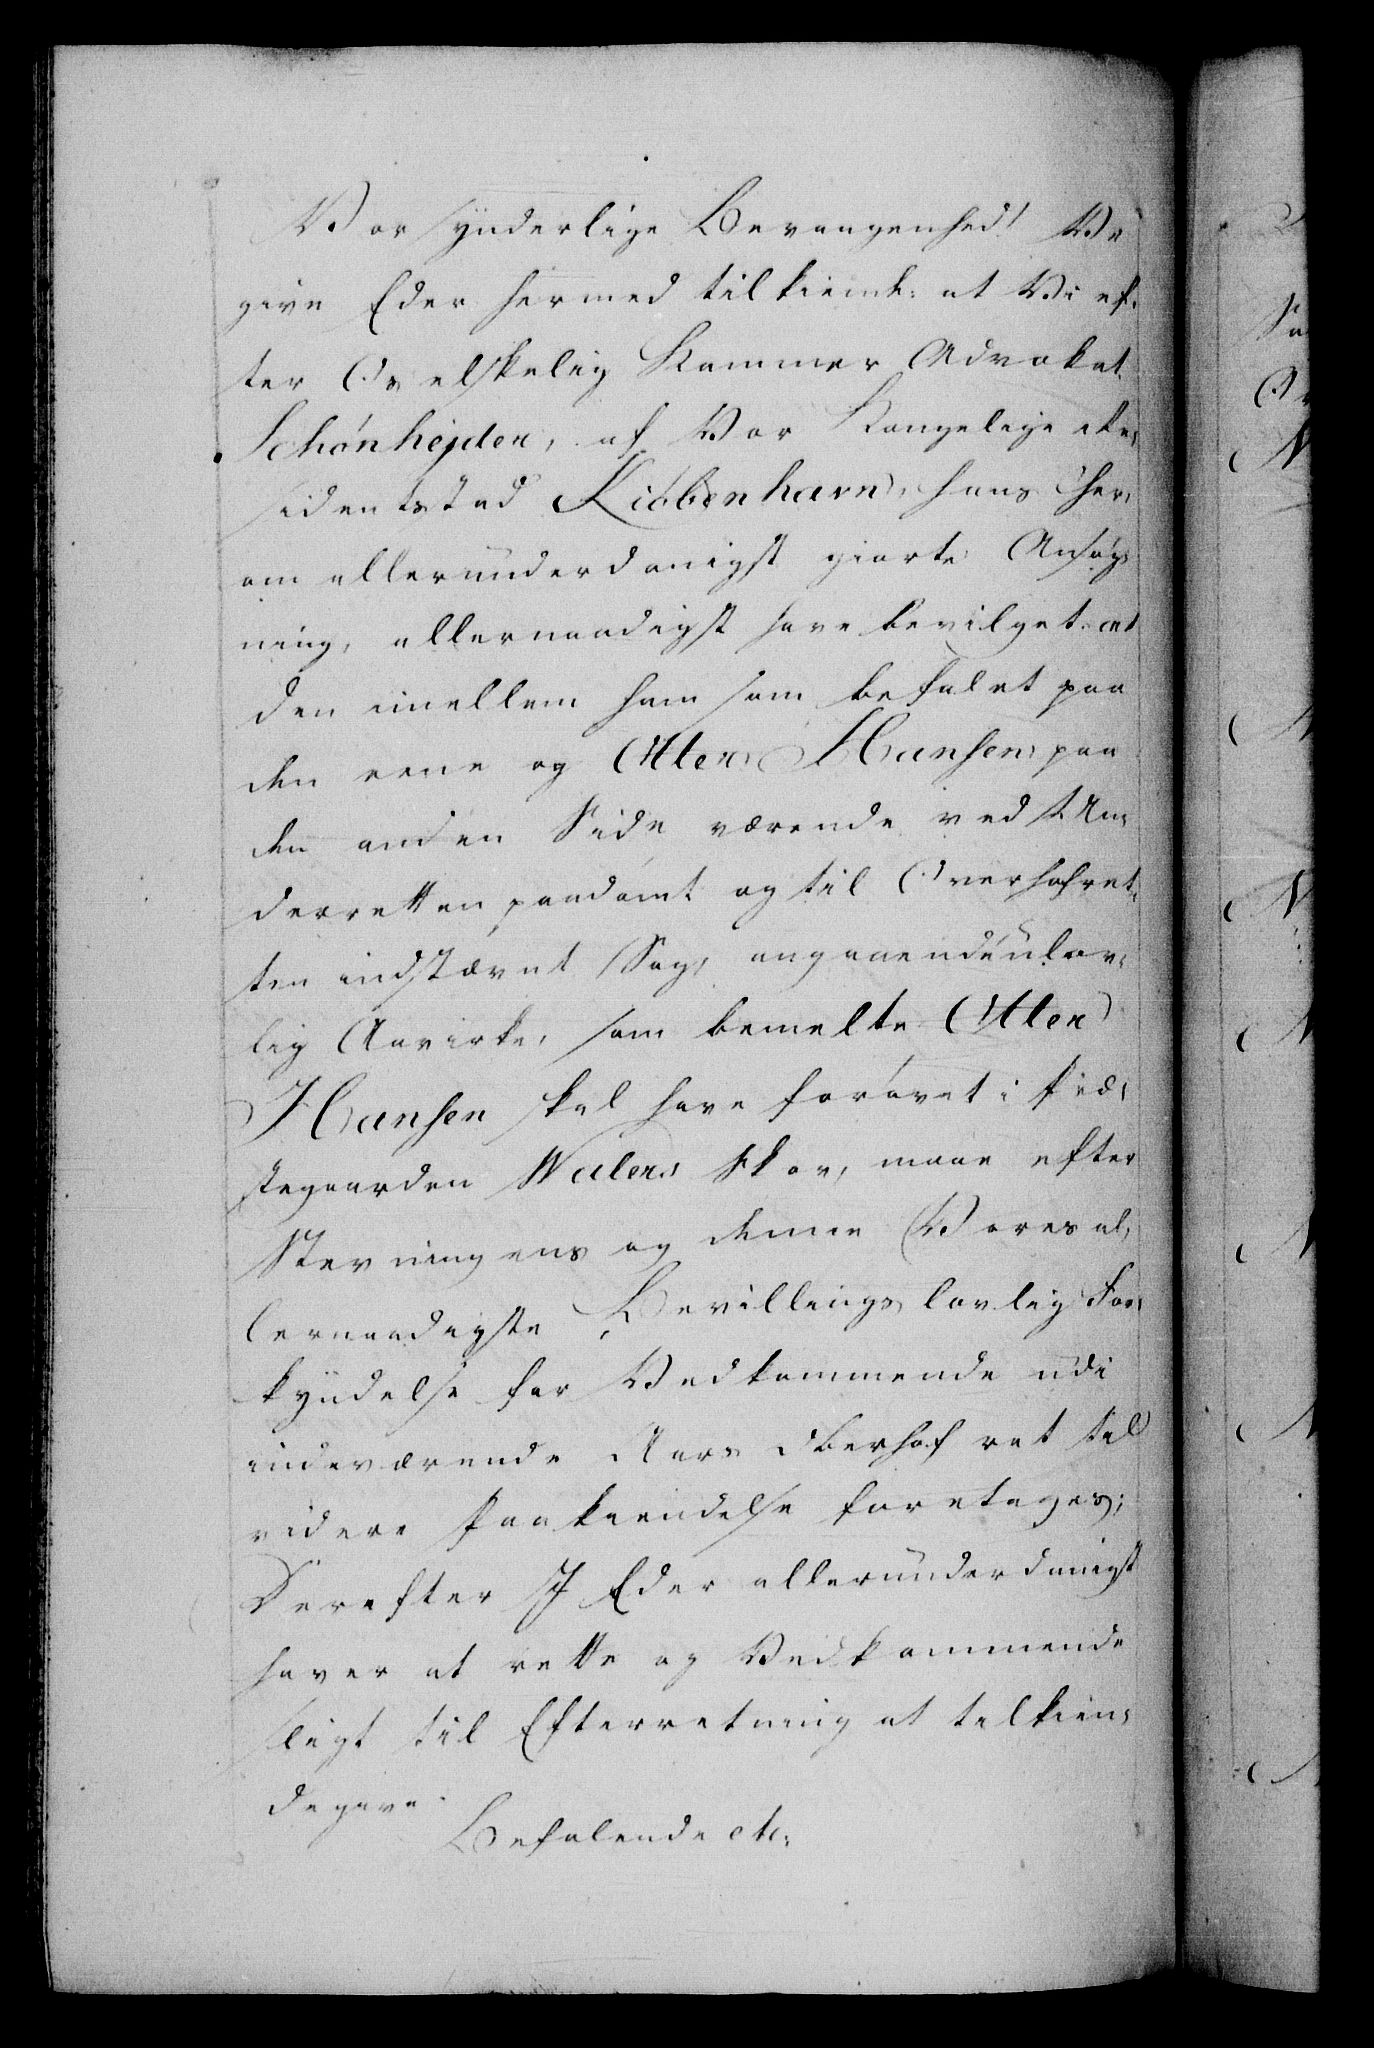 Vor synderlige Bevaagenhed! Vi
give Eder hermed tilkiende: at Vi ef-
ter Os elskelig Kammer Advokat
Schönheyder, af Vor Kongelige Re-
sidentsstad Kiöbenhavn, hans her-
om allerunderdanigst giorte Ansøg-
ning, allernaadigst have bevilget at
den imellem ham som befalet paa
den eene og Otter Hansen paa
den anden Side værende ved Un-
derretten paadömt og til Overhofret-
ten indstævnt Sag, angaaende ulov-
lig Aavirke, som bemelte Otter
Hansen skal have forövet i Præ-
stegaarden Walers Skov, maae efter
Stevningens og denne Vores al-
lernaadigste Bevillings lovlig For-
kyndelse for Vedkommende udi
indeværende Aars Oberhofret til
videre Paakiendelse foretages;
Derefter I Eder allerunderdanigst
haver at rette og Vedkommende
sligt til Efterretning at tilkien-
degive.
Befalende etc.